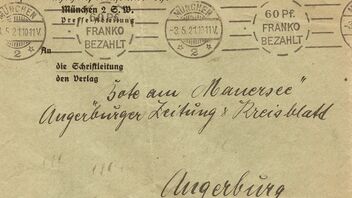 MÜNCHEN
60 Pf. FRANKO BEZAHLT
MÜNCHEN
60 Pf. FRANKO BEZAHLT
-3.5.21.10-11V.
2
2
München 2 S.W.
Presseleitung
An
die Schriftleitung
den Verlag
"Bote am Mauersee"
Angerburger Zeitung & Kreisblatt
Angerburg